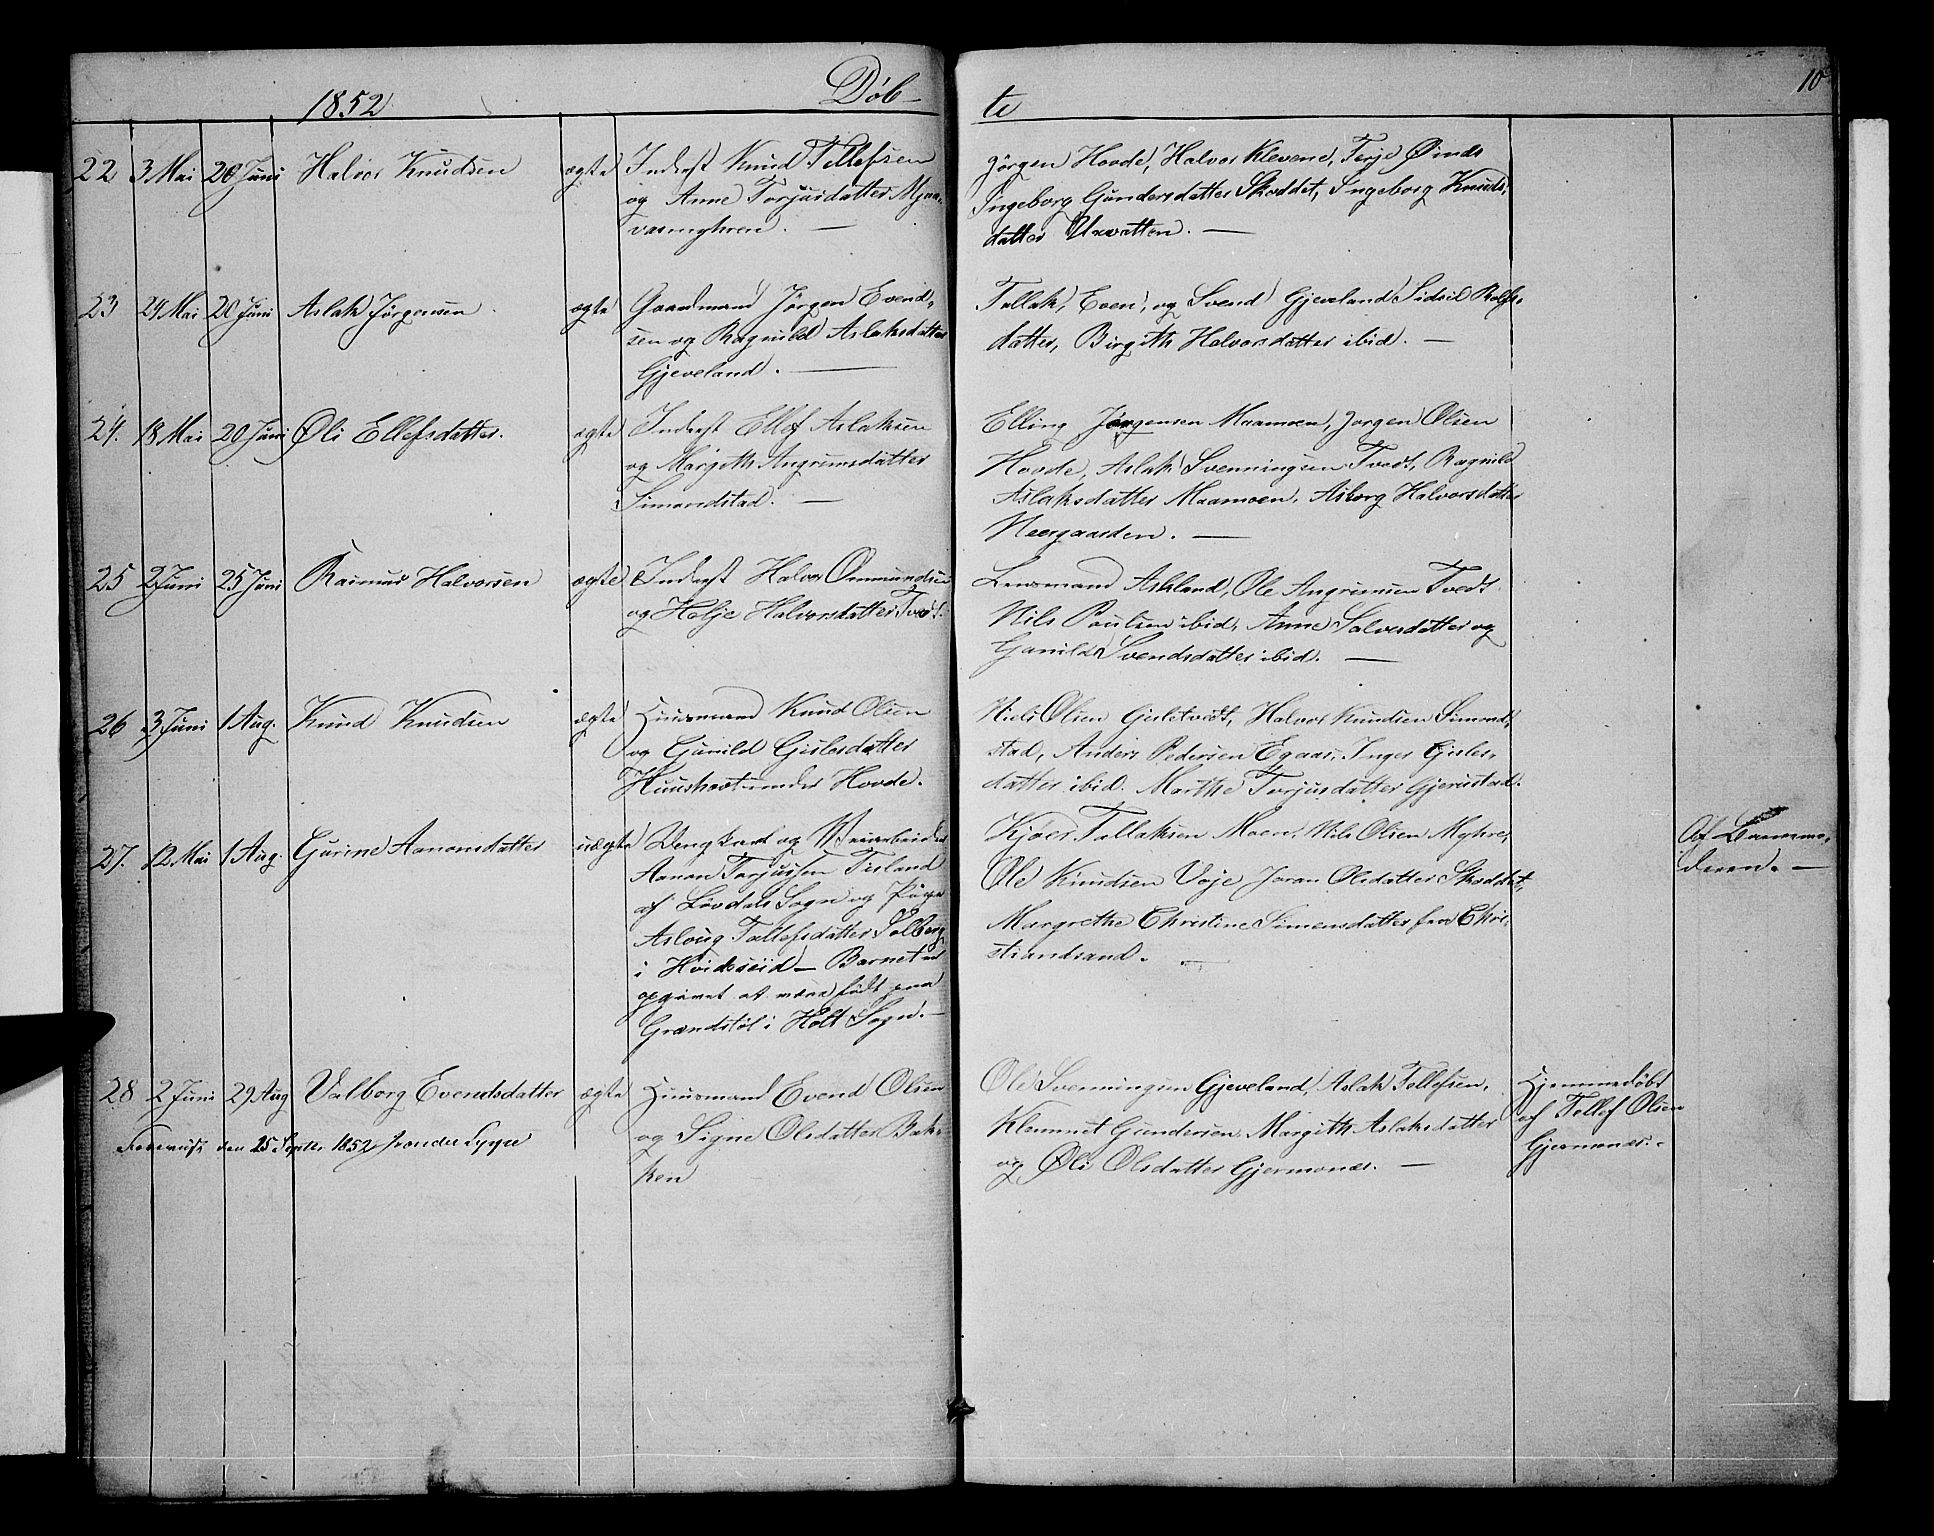 1852 Döb-
te 10
22 3 Mai 20 Juni Halvor Knudsen ægte Inderst Knud Tellefsen
og Anne Torjusdatter Mjaa-
vasmyhren. —
Jörgen Hovde, Halvor Klevene, Terje Øinds
Ingeborg Gundersdatter Skoddet, Ingeborg Knuds-
datter Uxvatten. —
23 24 Mai 20 Juni Aslak Jörgensen ægte Gaardmand Jörgen Evend-
sen og Ragnild Aslaksdatter
Gjeveland. —
Tallak, Even, og Svend Gjeveland Sidsil Rolfs-
datter, Birgith Halvorsdatter ibid. —
24. 18 Mai 20 Juni Øli Ellefsdatter. ægte Inderst Ellef Aslaksen
og Margith Angrimsdatter
Simonstad. —
Elling Jörgensen Maamoen, Jörgen Olsen
Hovde, Aslak Svenningsen Tvedt, Ragnild
Aslaksdatter Maamoen, Asborg Halvorsdatter
Neergaarden. —
25 2 Juni 25 Juni Rasmus Halvorsen ægte Inderst Halvor Ommundsen
og Helje Halvorsdatter Tvedt.
Lensmand Askland, Ole Angrimsen Tvedt
Nils Poulsen ibid, Anne Salvesdatter og
Gunild Svendsdatter ibid. —
26 3 Juni 1 Aug. Knud Knudsen ægte Huusmand Knud Olsen
og Gunild Gislesdatter
Huushovt under Hovde.
Niels Olsen Gislstvedt, Halvor Knudsen Simon-
stad, Anders Pedersen Egaas, Inger Gisles-
datter ibid. Marthe Torjusdatter Gjerustad.
27. 12 Mai 1 Aug. Gurine Aanonsdatter uægte Ungkarl og Veiarbeider
Aanon Torjussen Tisland
af Lövdals Sogn og Pige
Aslaug Tallefsdatter Solberg
i Hvidesseid — Barnet er
opgivet at være födt paa
Grændstöl i Holt Sogn. —
Kjöer Tallaksen Moen, Nils Olsen Myhre,
Ole Knudsen Voje Joran Olsdatter Skoddet,
Margrethe Christine Simensdatter fra Chri-
stiansand. —
Af Barnmo-
deren. —
28 2 Juni 29 Aug Valborg Evendsdatter ægte Huusmand Evend Olsen
og Signe Olsdatter Bak-
ken
Foreviist den 25 Septer 1852
Ole Svenningsen Gjeveland, Aslak Tellefsen,
Klemmet Gundersen, Margith Aslaksdatter
og Øli Olsdatter Gjermonæs. —
Hjemmedöbt
af Tellef Olsen
Gjermonæs. —